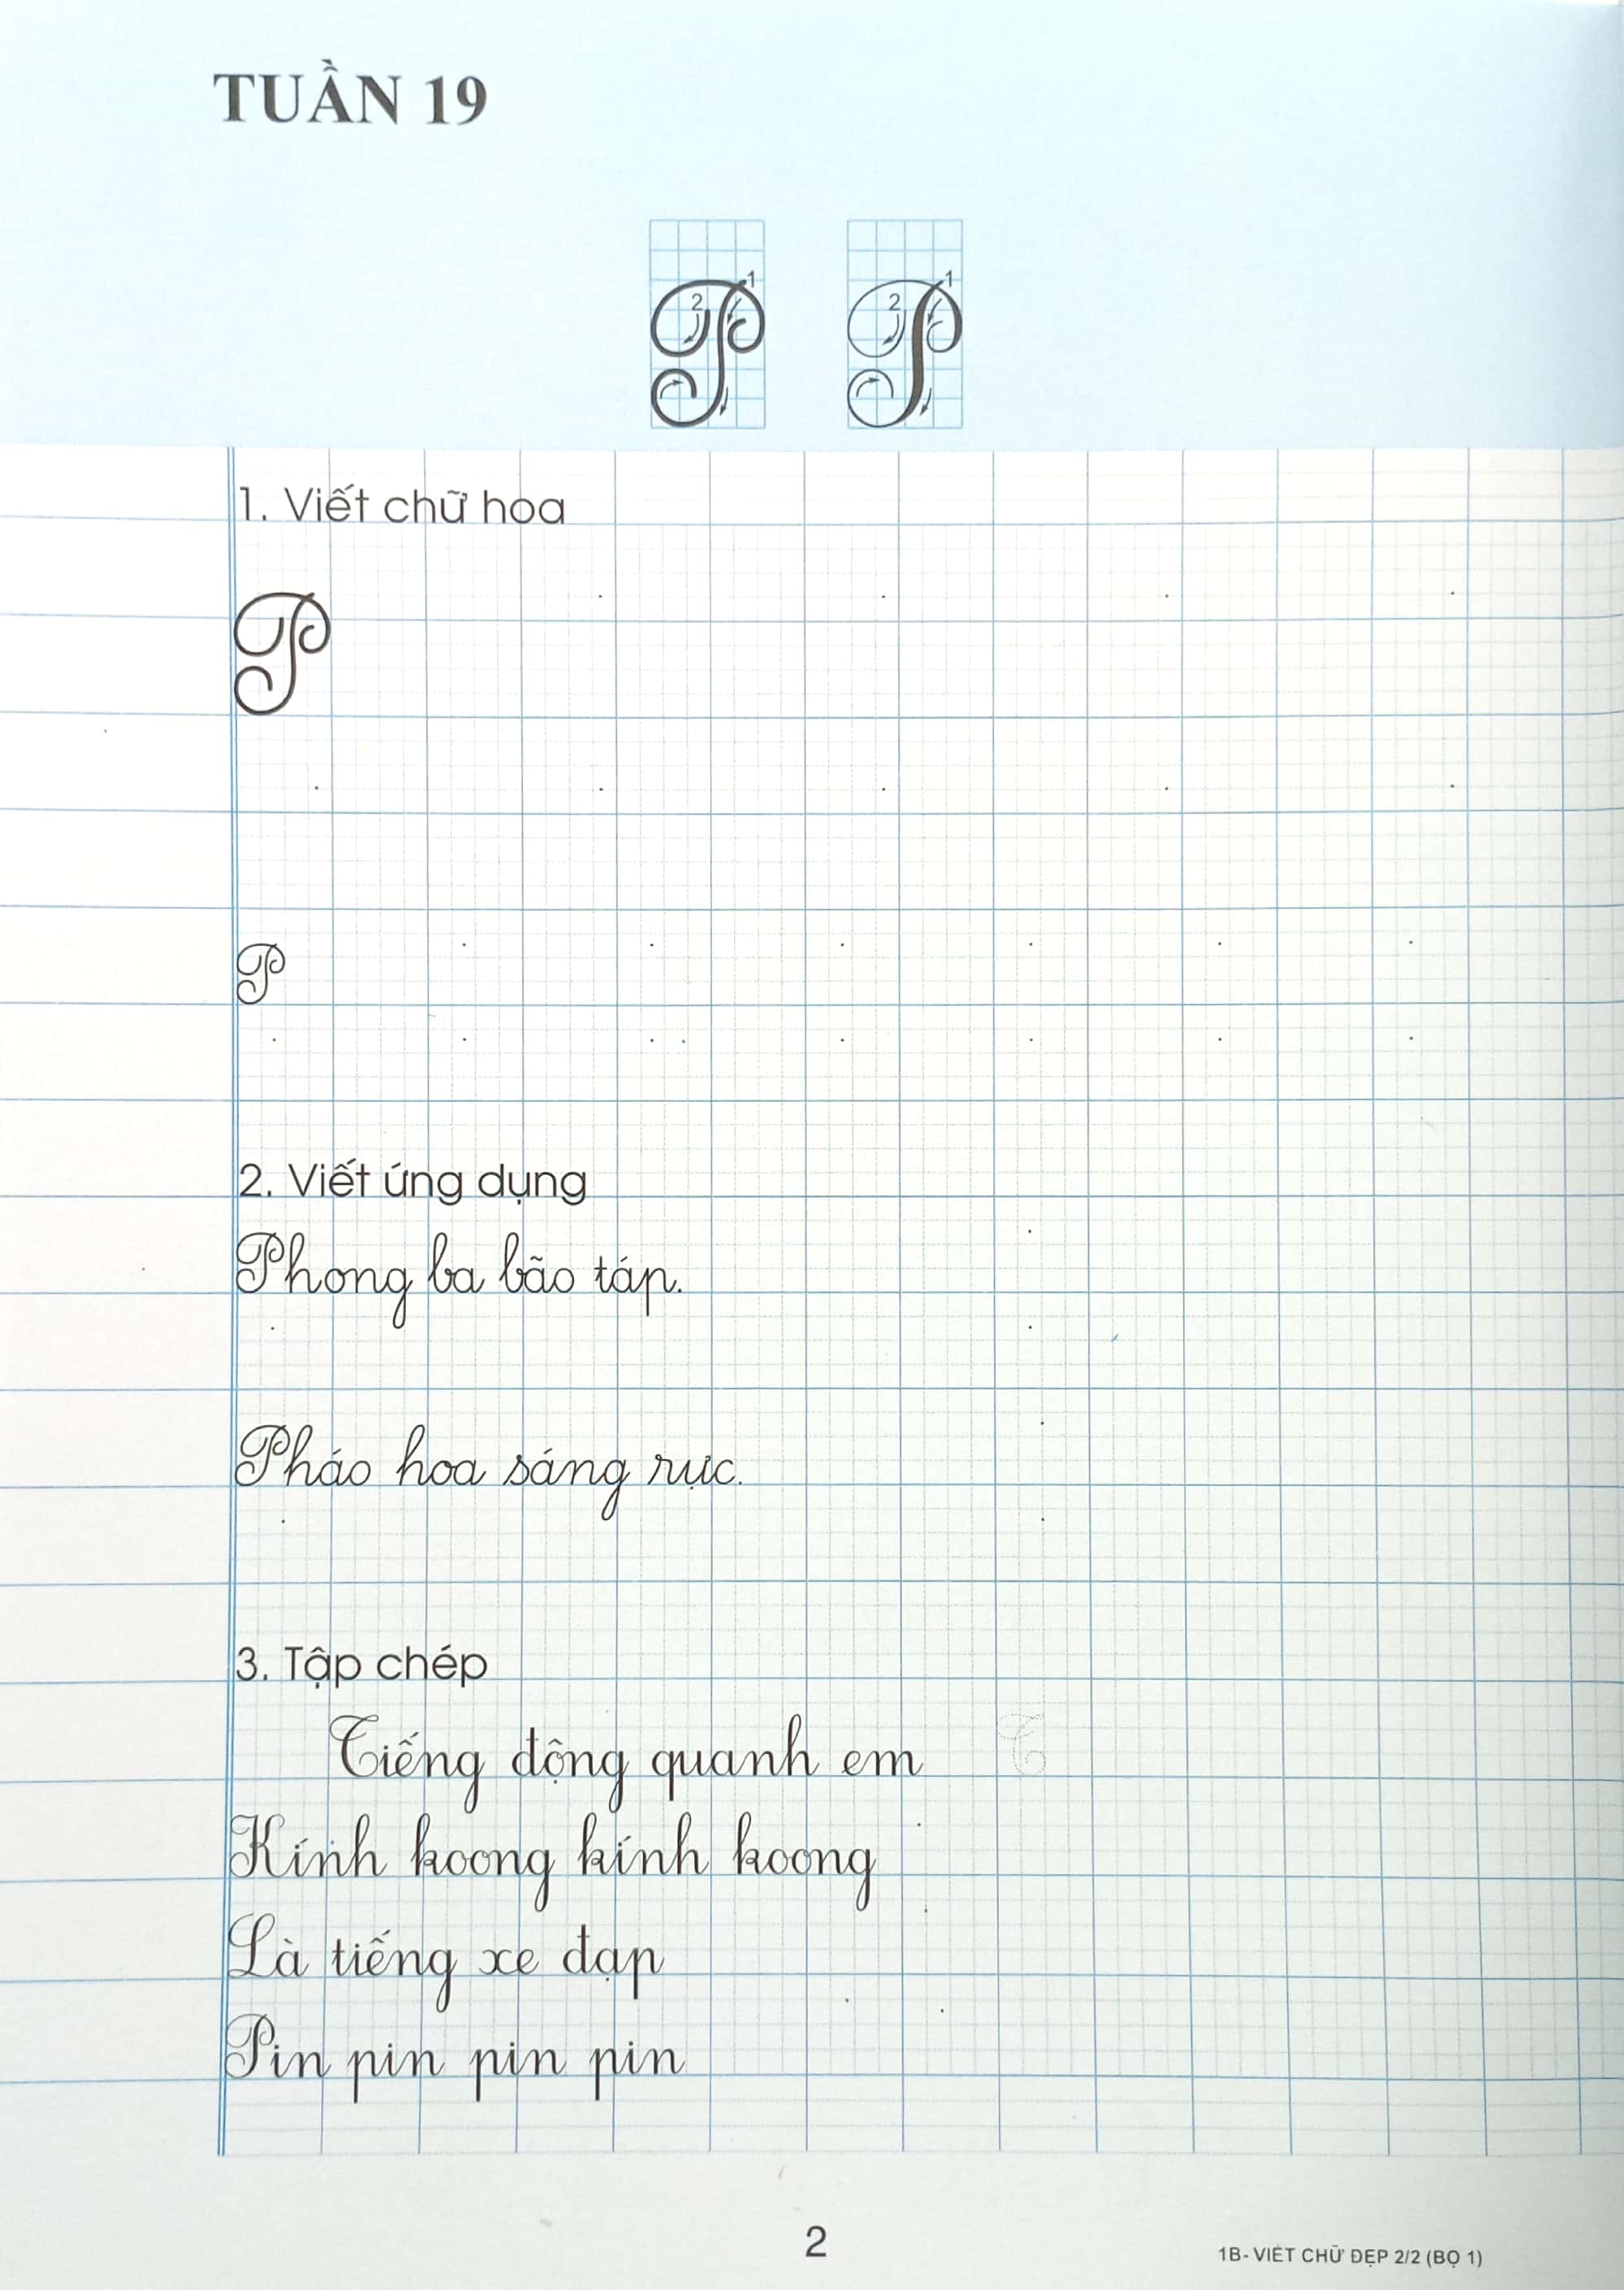 TUẦN 19
1 2 1 2
1. Viết chữ hoa
P
P
2. Viết ứng dụng
Phong ba bão táp.
Pháo hoa sáng rực.
3. Tập chép
Tiếng động quanh em T
Kính koong kính koong
Là tiếng xe đạp
Pin pin pin pin
2
1B- VIẾT CHỮ ĐẸP 2/2 (BỘ 1)